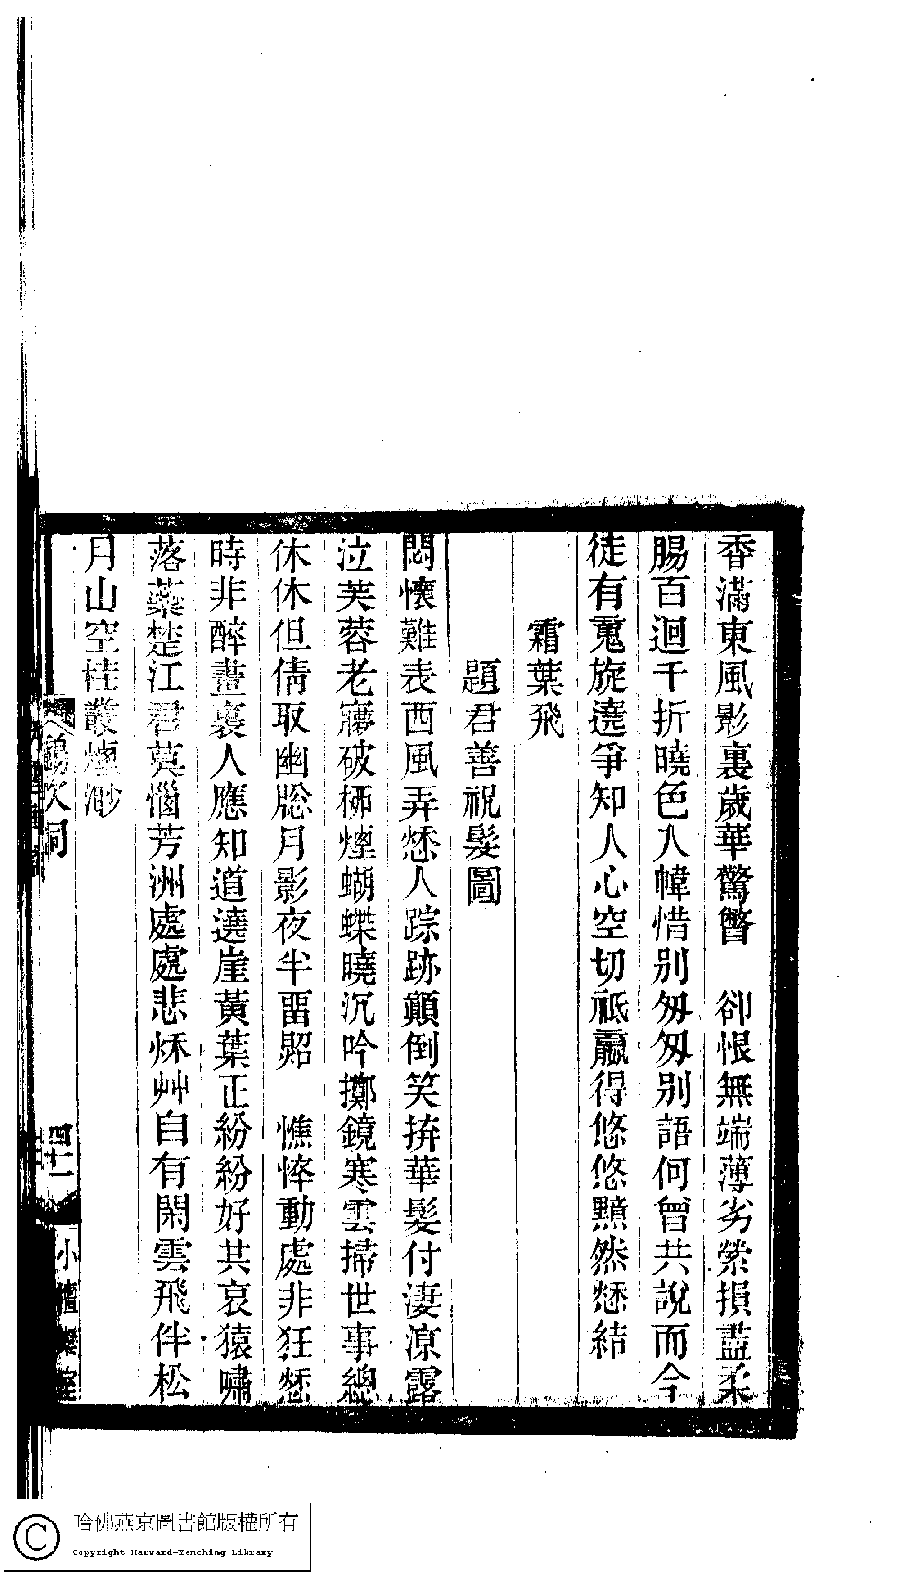 香滿東風影裏歲華驚瞥　卻恨無端薄劣縈損盡柔
腸百迴千折曉色人幃惜別匆匆別語何曾共說而今
徒有䰟旋遶爭知人心空切祇贏得悠悠黯然愁結
霜葉飛
題君善祝髮圖
悶懷難表西風弄愁人踪跡顛倒笑拚華髮付淒涼露
泣芙蓉老寱破柳煙蝴蝶曉沉吟擲鏡寒雲掃世事總
休休但倩取幽牕月影夜半畱照　憔悴動處非狂愁
時非醉畫裏人應知道遶崖黃葉正紛紛好共哀猿嘯
落蘂楚江君莫惱芳洲處處悲秌艸自有閑雲飛伴松
月山空桂叢煙渺
鶴吹詞
四十二
小檀欒室
哈佛燕京圖書館版權所有
Copyright Harvard-Yenching Library